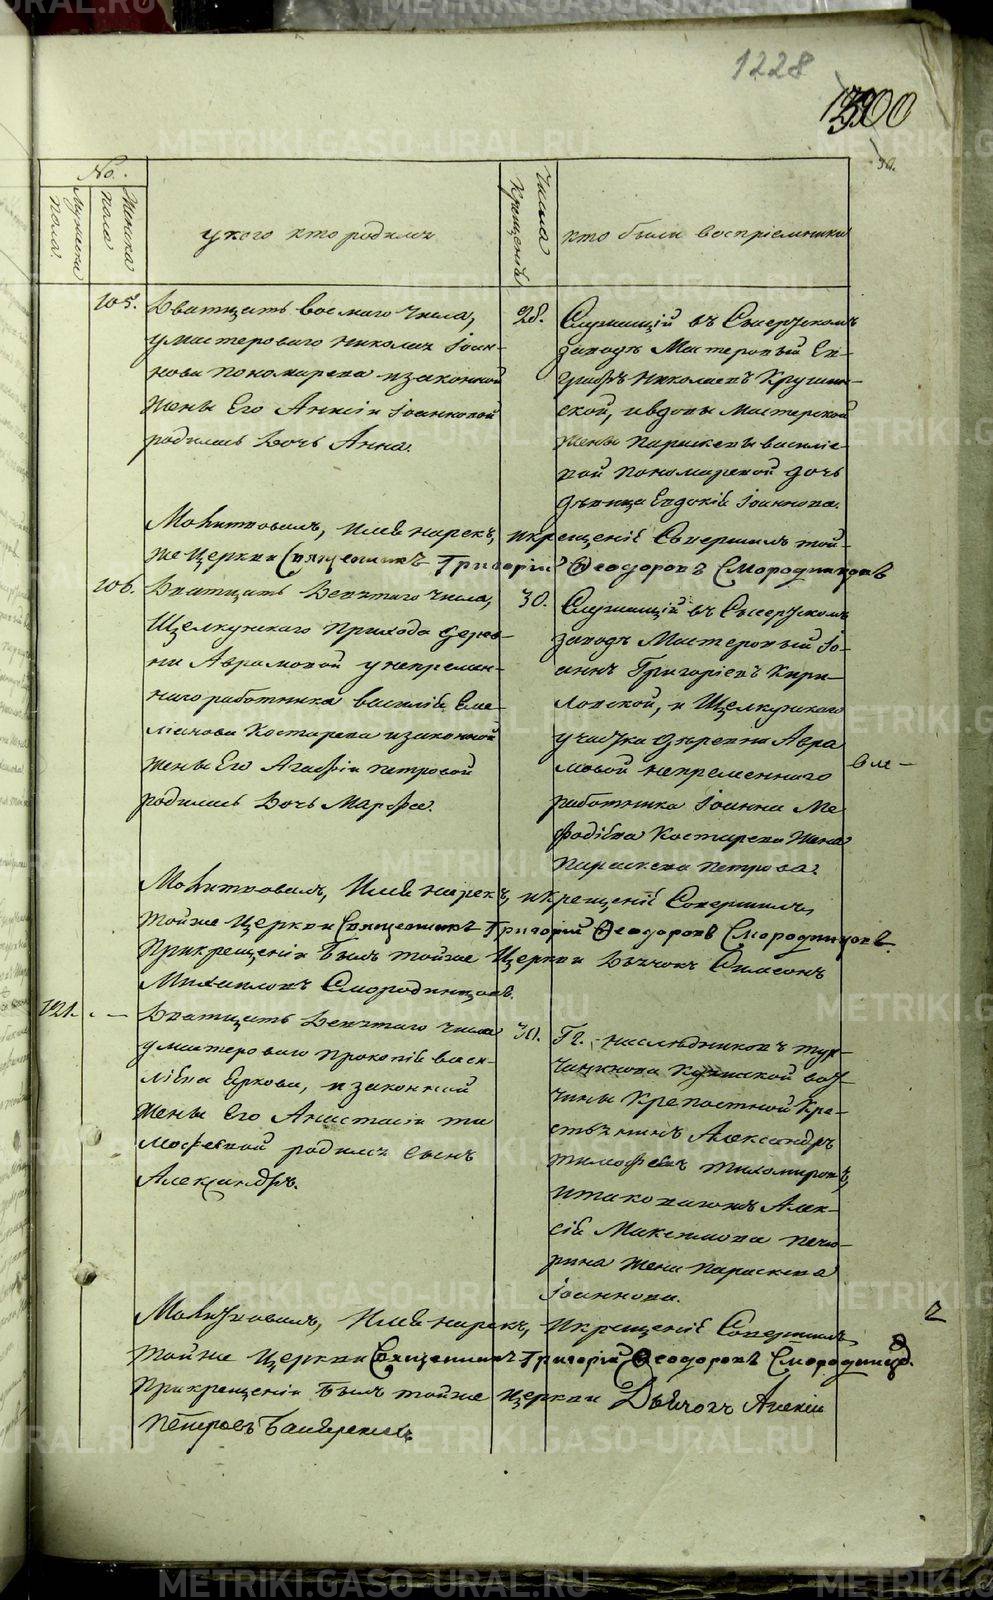 1228
1300
No.
Мужеска пола.
Женска пола
у кого кто родился
Числа Крещенія
кто были воспріемники
105.
Дватцать восмаго числа,
у мастероваго Николая Іоан-
нова Пономарева и законной
жены Его Анисіи Іоанновой
родилась Дочь Анна.
28.
Служащій въ Сысертскомъ
заводѣ Мастеровый Ев-
графъ Николаевъ Кручин-
ской, и вдовы Мастерской
жены Параскевы Василіе-
вой Пономаревой дочь
Дѣвица Евдокія Іоаннова.
Молитвовалъ, Имя нарекъ, и крещеніе Совершилъ той-
же Церкви Священникъ Григорій Феодоровъ Смородинцовъ
106.
Дватцать Девятаго числа,
Щелкунскаго Прихода дерев-
ни Аврамовой у непремен-
наго работника Василія Еме-
ліанова Костарева и законной
жены Его Агафіи Петровой
родилась Дочь Марфа.
30.
Служащій въ Сысертскомъ
заводѣ Мастеровый Іо-
аннъ Григоріевъ Кири-
ловской, и Щелкунскаго
участка деревни Авра
мовой непременнаго
работника Іоанна Ме
фодіева Костарева Жена
Параскева Петрова.
Молитвовалъ, Имя нарекъ, и крещеніе Совершилъ,
тойже Церкви Священникъ Григорій Феодоровъ Смородинцовъ.
При крещеніи былъ тойже Церкви Дьячокъ Симеонъ
Михаиловъ Смородинцовъ.
121.
Дватцать Девятаго числа
у мастероваго Прокопія Васи-
ліева Яркова, и законной
жены Его Анастасіи Ти
мофеевой родился сынъ
Александръ.
30.
Гг. наслѣдниковъ Тур-
чанинова вот-
чины Крепостной Кре-
стьянинъ Александръ
Тимофеевъ Тихомировъ,
и таковагожъ Алек-
сія Максимова Печо-
рина жена Параскева
Іоаннова.
Молитвовалъ, Имя нарекъ, и крещеніе Совершилъ
тойже Церкви Священникъ Григорій Феодоровъ Смородинцовъ.
При крещеніи былъ тойже Церкви Дьячокъ Алексій
Петровъ